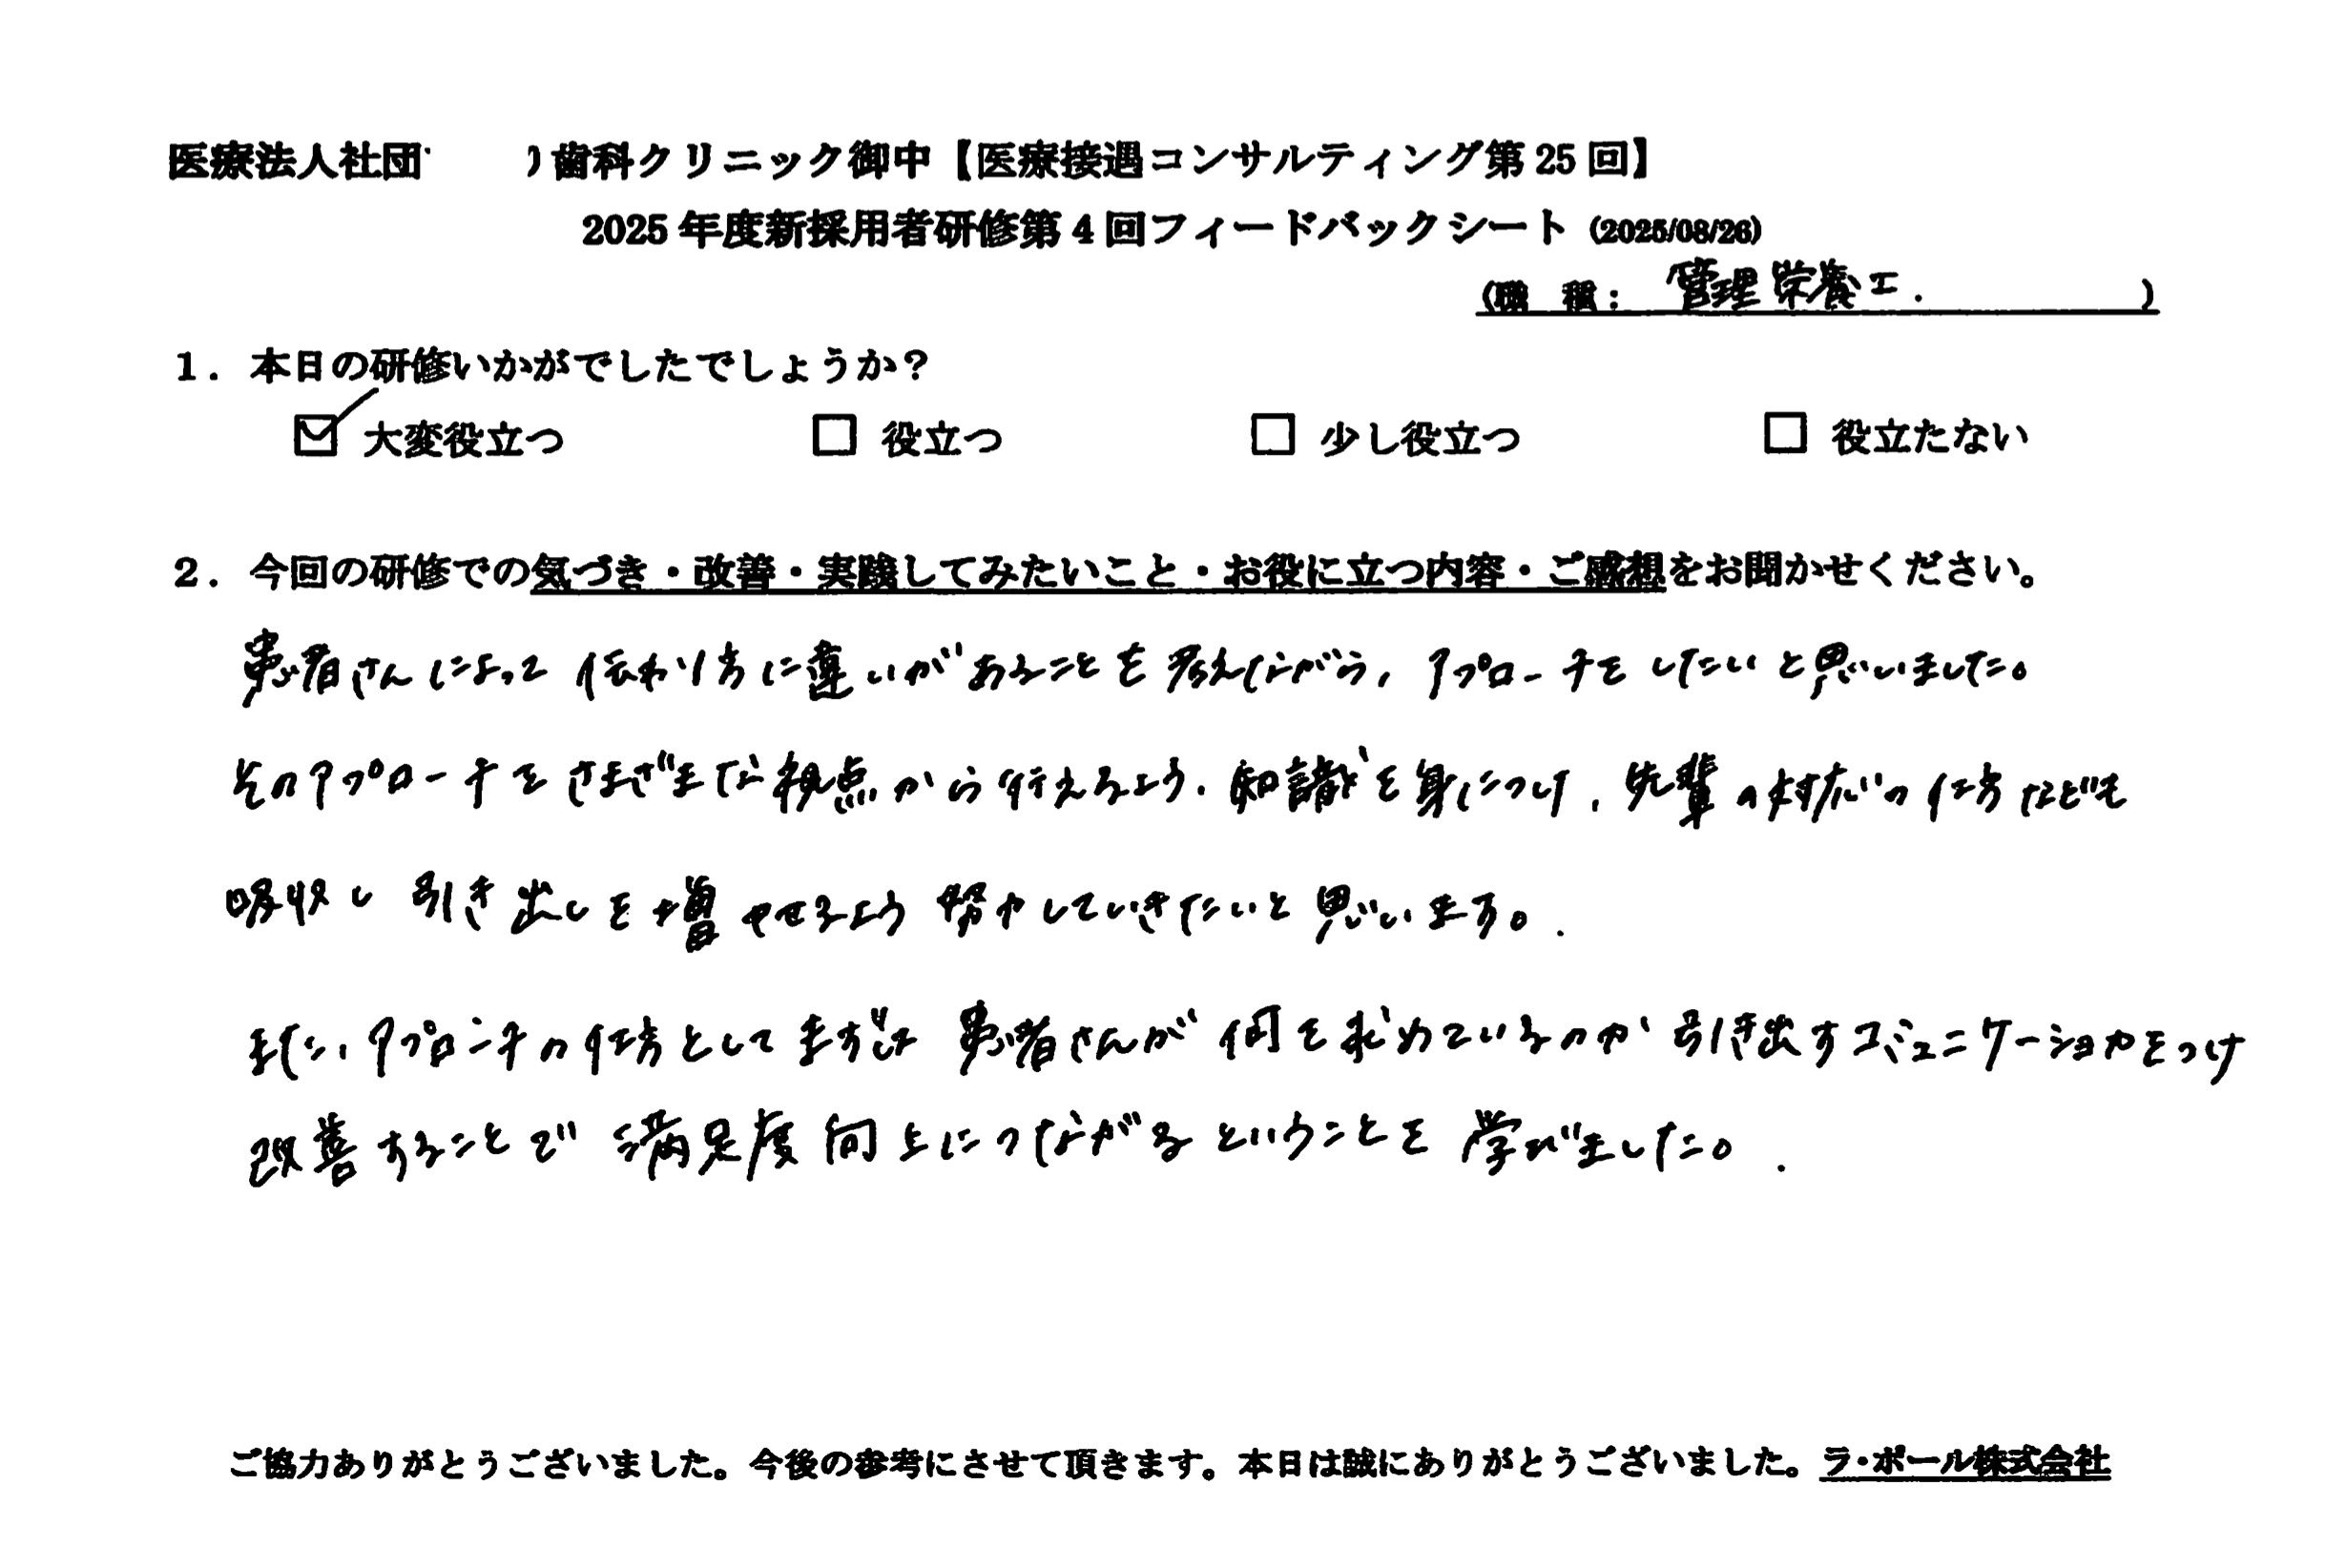 医療法人社団 歯科クリニック御中【医療接遇コンサルティング第25回】
2025年度新採用者研修第4回フィードバックシート (2025/08/26)
(職 種: 管理栄養士. )
1. 本日の研修いかがでしたでしょうか?
☑ 大変役立つ □ 役立つ □ 少し役立つ □ 役立たない
2. 今回の研修での気づき・改善・実践してみたいこと・お役に立つ内容・ご感想をお聞かせください。
患者さんによって伝わり方に違いがあることを考えながら、アプローチをしたいと思いました。
そのアプローチをさまざまな視点から行えるよう、知識を身につけ、先輩の対応の仕方なども
吸収し引き出しを増やせるよう努力していきたいと思います。
また、アプローチの仕方としてまずは患者さんが何を求めているのか引き出すコミュニケーション力をつけ
改善することで満足度向上につながるということを学びました。
ご協力ありがとうございました。今後の参考にさせて頂きます。本日は誠にありがとうございました。ラ・ポール株式会社